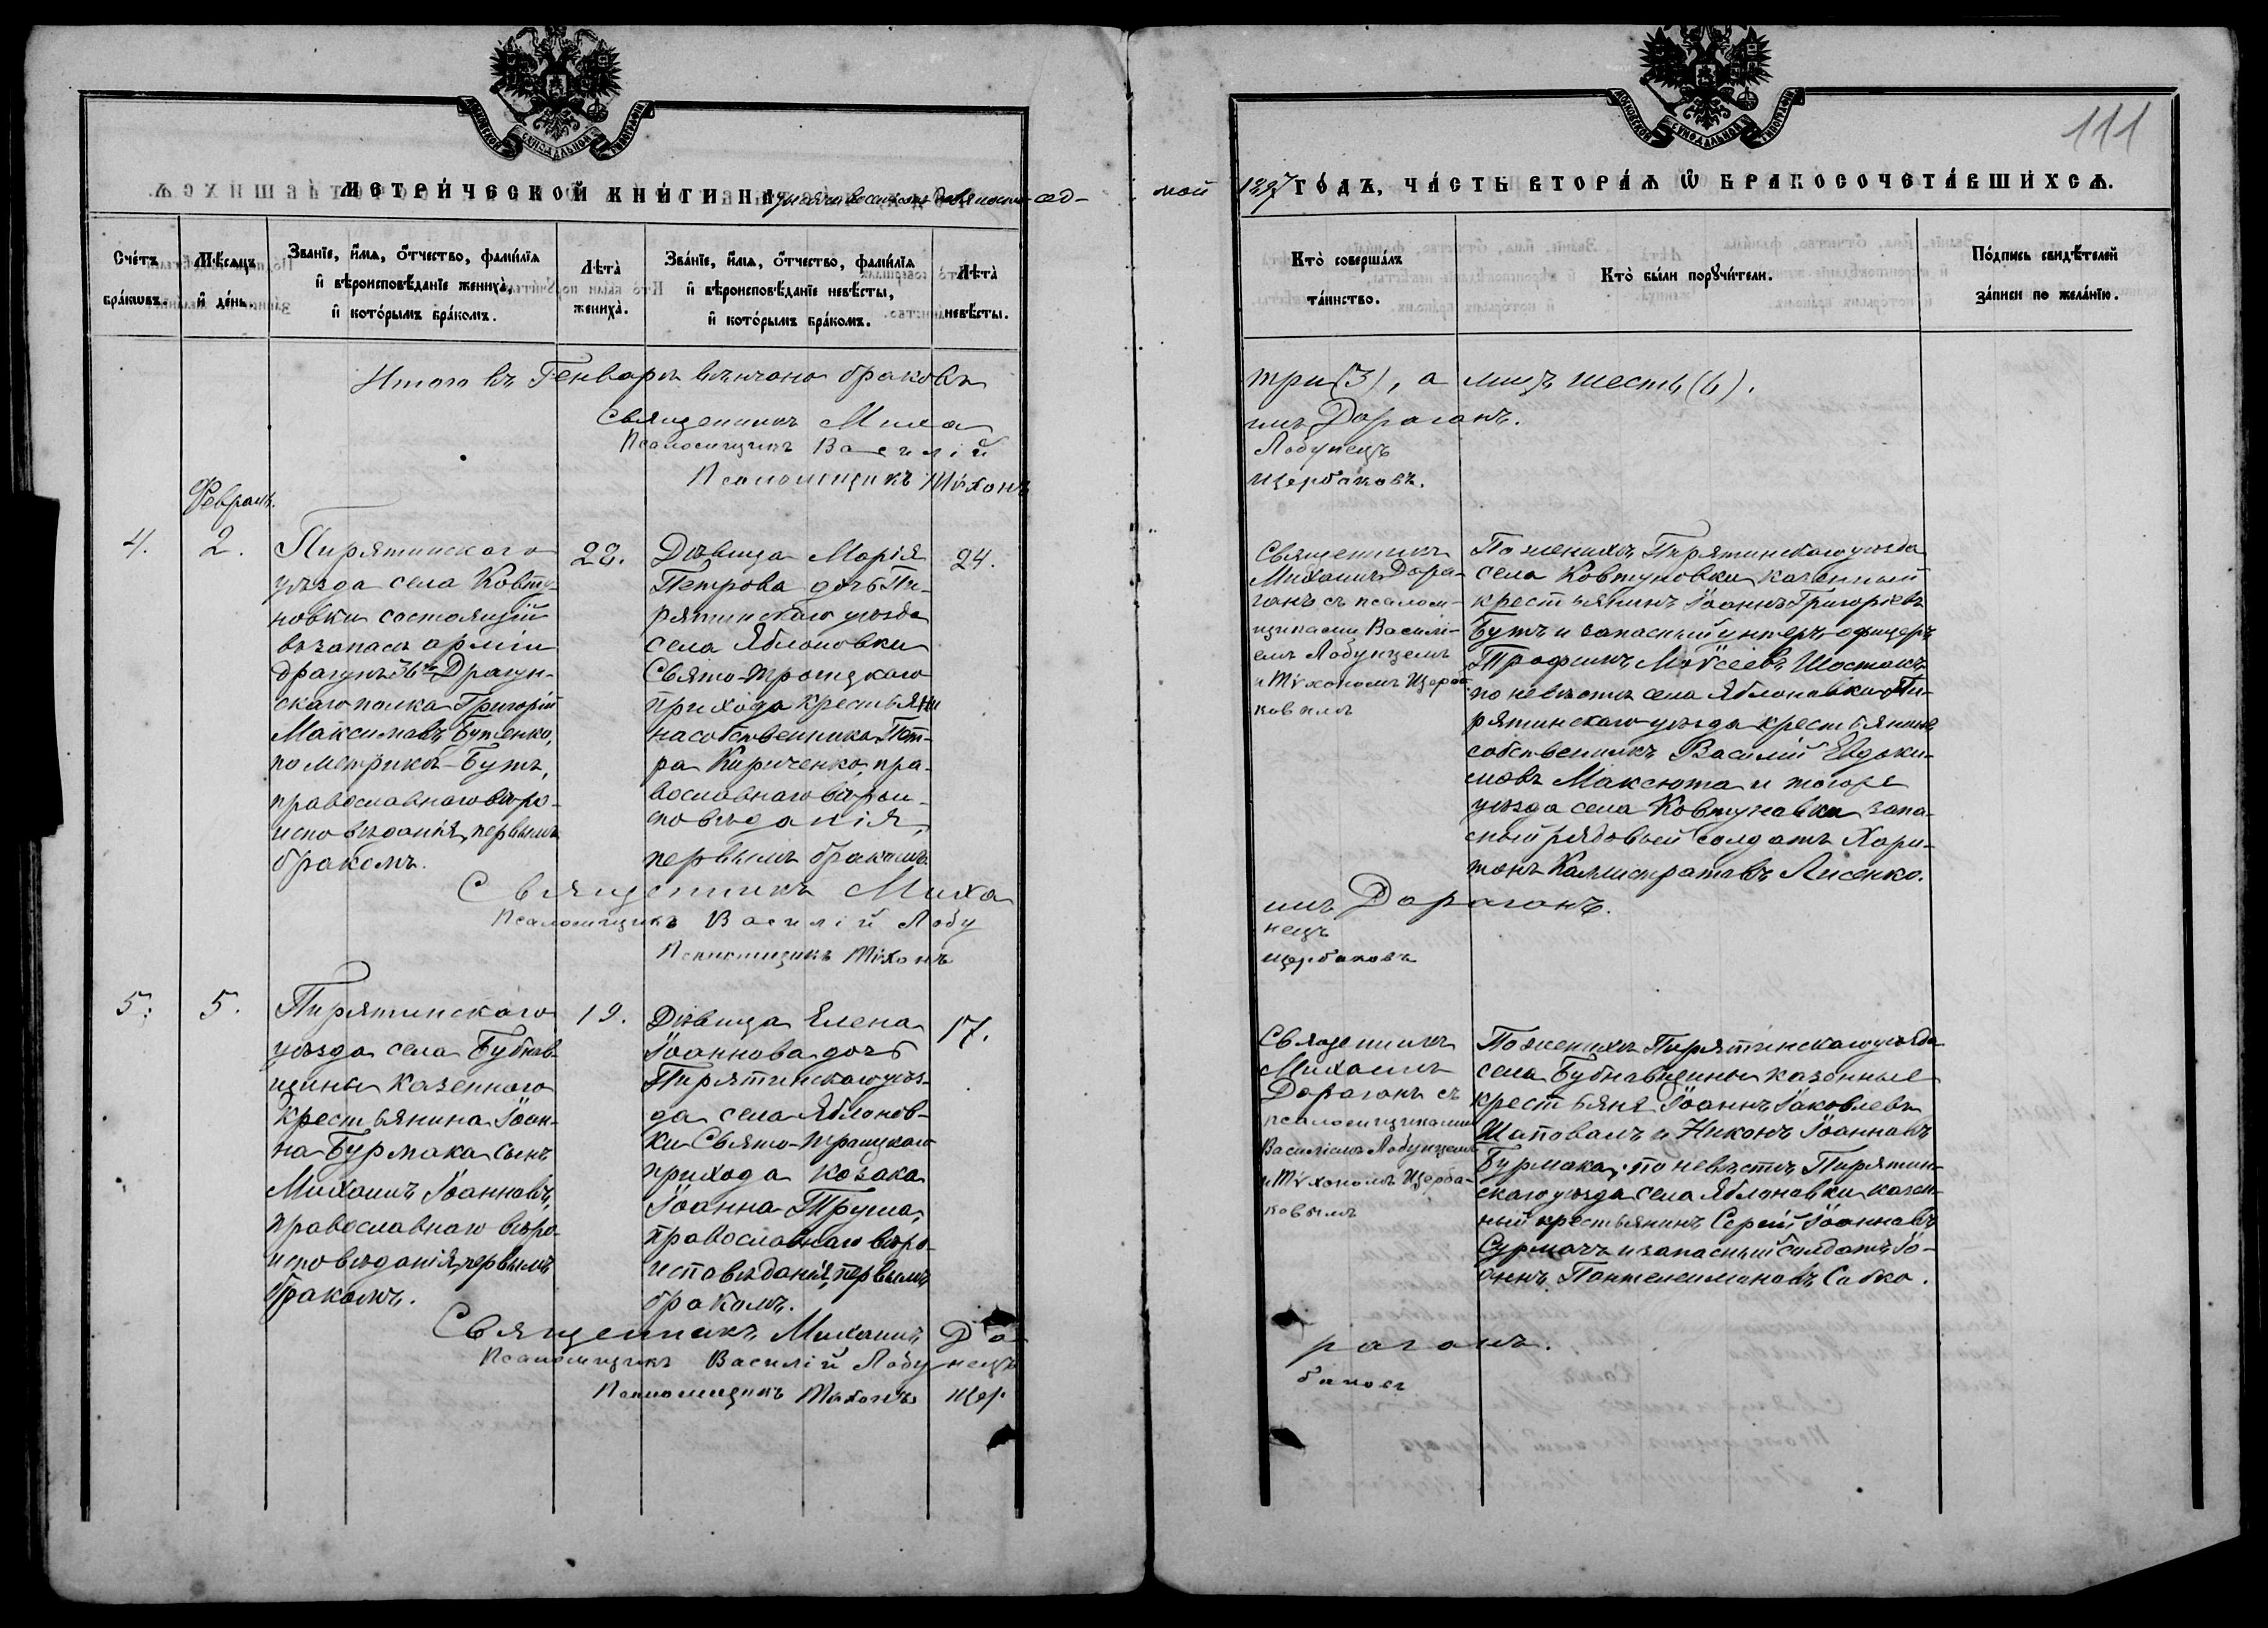 МОСКОВСКОЙ СѴНОДАЛЬНОЙ ТИПОГРАФІИ
МОСКОВСКОЙ СѴНОДАЛЬНОЙ ТИПОГРАФІИ
111
МЕТРИ́ЧЕСКОЙ КНИ́ГИ НА тысяча восемьсотъ девяносто сед-
мой 1897 ГО́ДЪ, ЧА́СТЬ ВТОРА́Ѧ Ѿ БРАКОСОЧЕТА́ВШИХСѦ.
Сче́тъ бра́кѡвъ.
Мѣ́сѧцъ и҆ де́нь.
Зва́нїе, и҆́мѧ, ѻ҆́тчество, фамѝлїѧ
и҆ вѣроисповѣ́данїе жениха̀,
и҆ кото́рымъ бра́комъ.
Лѣта̀
жениха̀.
Зва́нїе, и҆́мѧ, ѻ҆́тчество, фамѝлїѧ
и҆ вѣроисповѣ́данїе невѣ́сты,
и҆ кото́рымъ бра́комъ.
Лѣта̀
невѣ́сты.
Кто̀ соверша́лъ
та́инство.
Кто̀ бы́ли порꙋчи́тели.
По́дпись свидѣ́телей
за́писи по жела́нїю.
Итого въ Генварѣ вѣнчано браковъ
три (3), а лицъ шесть (6).
Священникъ Миха
илъ Дараганъ.
Псаломщикъ Василій
Лобунецъ
Псаломщикъ Тѵхонъ
Щербаковъ.
Февраль.
4.
2.
Пирятинскаго
уѣзда села Ковту-
новки состоящій
въ запасѣ арміи
драгунъ 36го Драгун-
скаго полка Григорій
Максимовъ Бутенко,
по метрикѣ Бутъ,
православнаго вѣро-
исповѣданія, первымъ
бракомъ.
22.
Дѣвица Марія
Петрова дочь Пи-
рятинскаго уѣзда
села Яблоновки
Свято-Троицкаго
прихода крестьяни
на собственника Пет-
ра Кириченко, пра-
вославнаго вѣроис-
повѣданія,
первымъ бракомъ.
24.
Священникъ
Михаилъ Дара-
ганъ съ псалом-
щиками Василі-
емъ Лобунцемъ
и Тѵхономъ Щерба-
ковымъ
По женихѣ Пирятинскаго уѣзда
села Ковтуновки казенный
крестьянинъ Іоаннъ Григорьевъ
Бутъ и запасный унтеръ-офицеръ
Трофимъ Моѵсеевъ Шостакъ,
по невѣстѣ села Яблоновки Пи-
рятинскаго уѣзда крестьянинъ
собственникъ Василій Евдоки-
мовъ Максюта и тогоже
уѣзда села Ковтуновки запа-
сный рядовый солдатъ Хари-
тонъ Каллистратовъ Лисенко.
Священникъ Миха
илъ Дараганъ.
Псаломщикъ Василій Лобу
нецъ
Псаломщикъ Тѵхонъ
Щербаковъ
5.
5.
Пирятинскаго
уѣзда села Бубнов-
щины казеннаго
крестьянина Іоан-
на Бурмака сынъ
Михаилъ Іоанновъ,
православнаго вѣро-
исповѣданія, первымъ
бракомъ.
19.
Дѣвица Елена
Іоаннова дочь
Пирятинскаго уѣз-
да села Яблонов-
ки Свято-Троицкаго
прихода козака
Іоанна Труша,
православнаго вѣро-
исповѣданія, первымъ
бракомъ.
17.
Священникъ
Михаилъ
Дараганъ съ
псаломщиками
Василіемъ Лобунцемъ
и Тѵхономъ Щерба-
ковымъ
По женихѣ Пирятинскаго уѣзда
села Бубновщины казенные
крестьяне Іоаннъ Іаковлевъ
Шаповалъ и Никонъ Іоанновъ
Бурмака, по невѣстѣ Пирятин-
скаго уѣзда села Яблоновки казен-
ный крестьянинъ Сергій Іоанновъ
Сурмачъ и запасный солдатъ Іо-
аннъ Пантелеимоновъ Сабко.
Священникъ Михаилъ Да
раганъ.
Псаломщикъ Василій Лобунецъ
Псаломщикъ Тѵхонъ Щер
баковъ